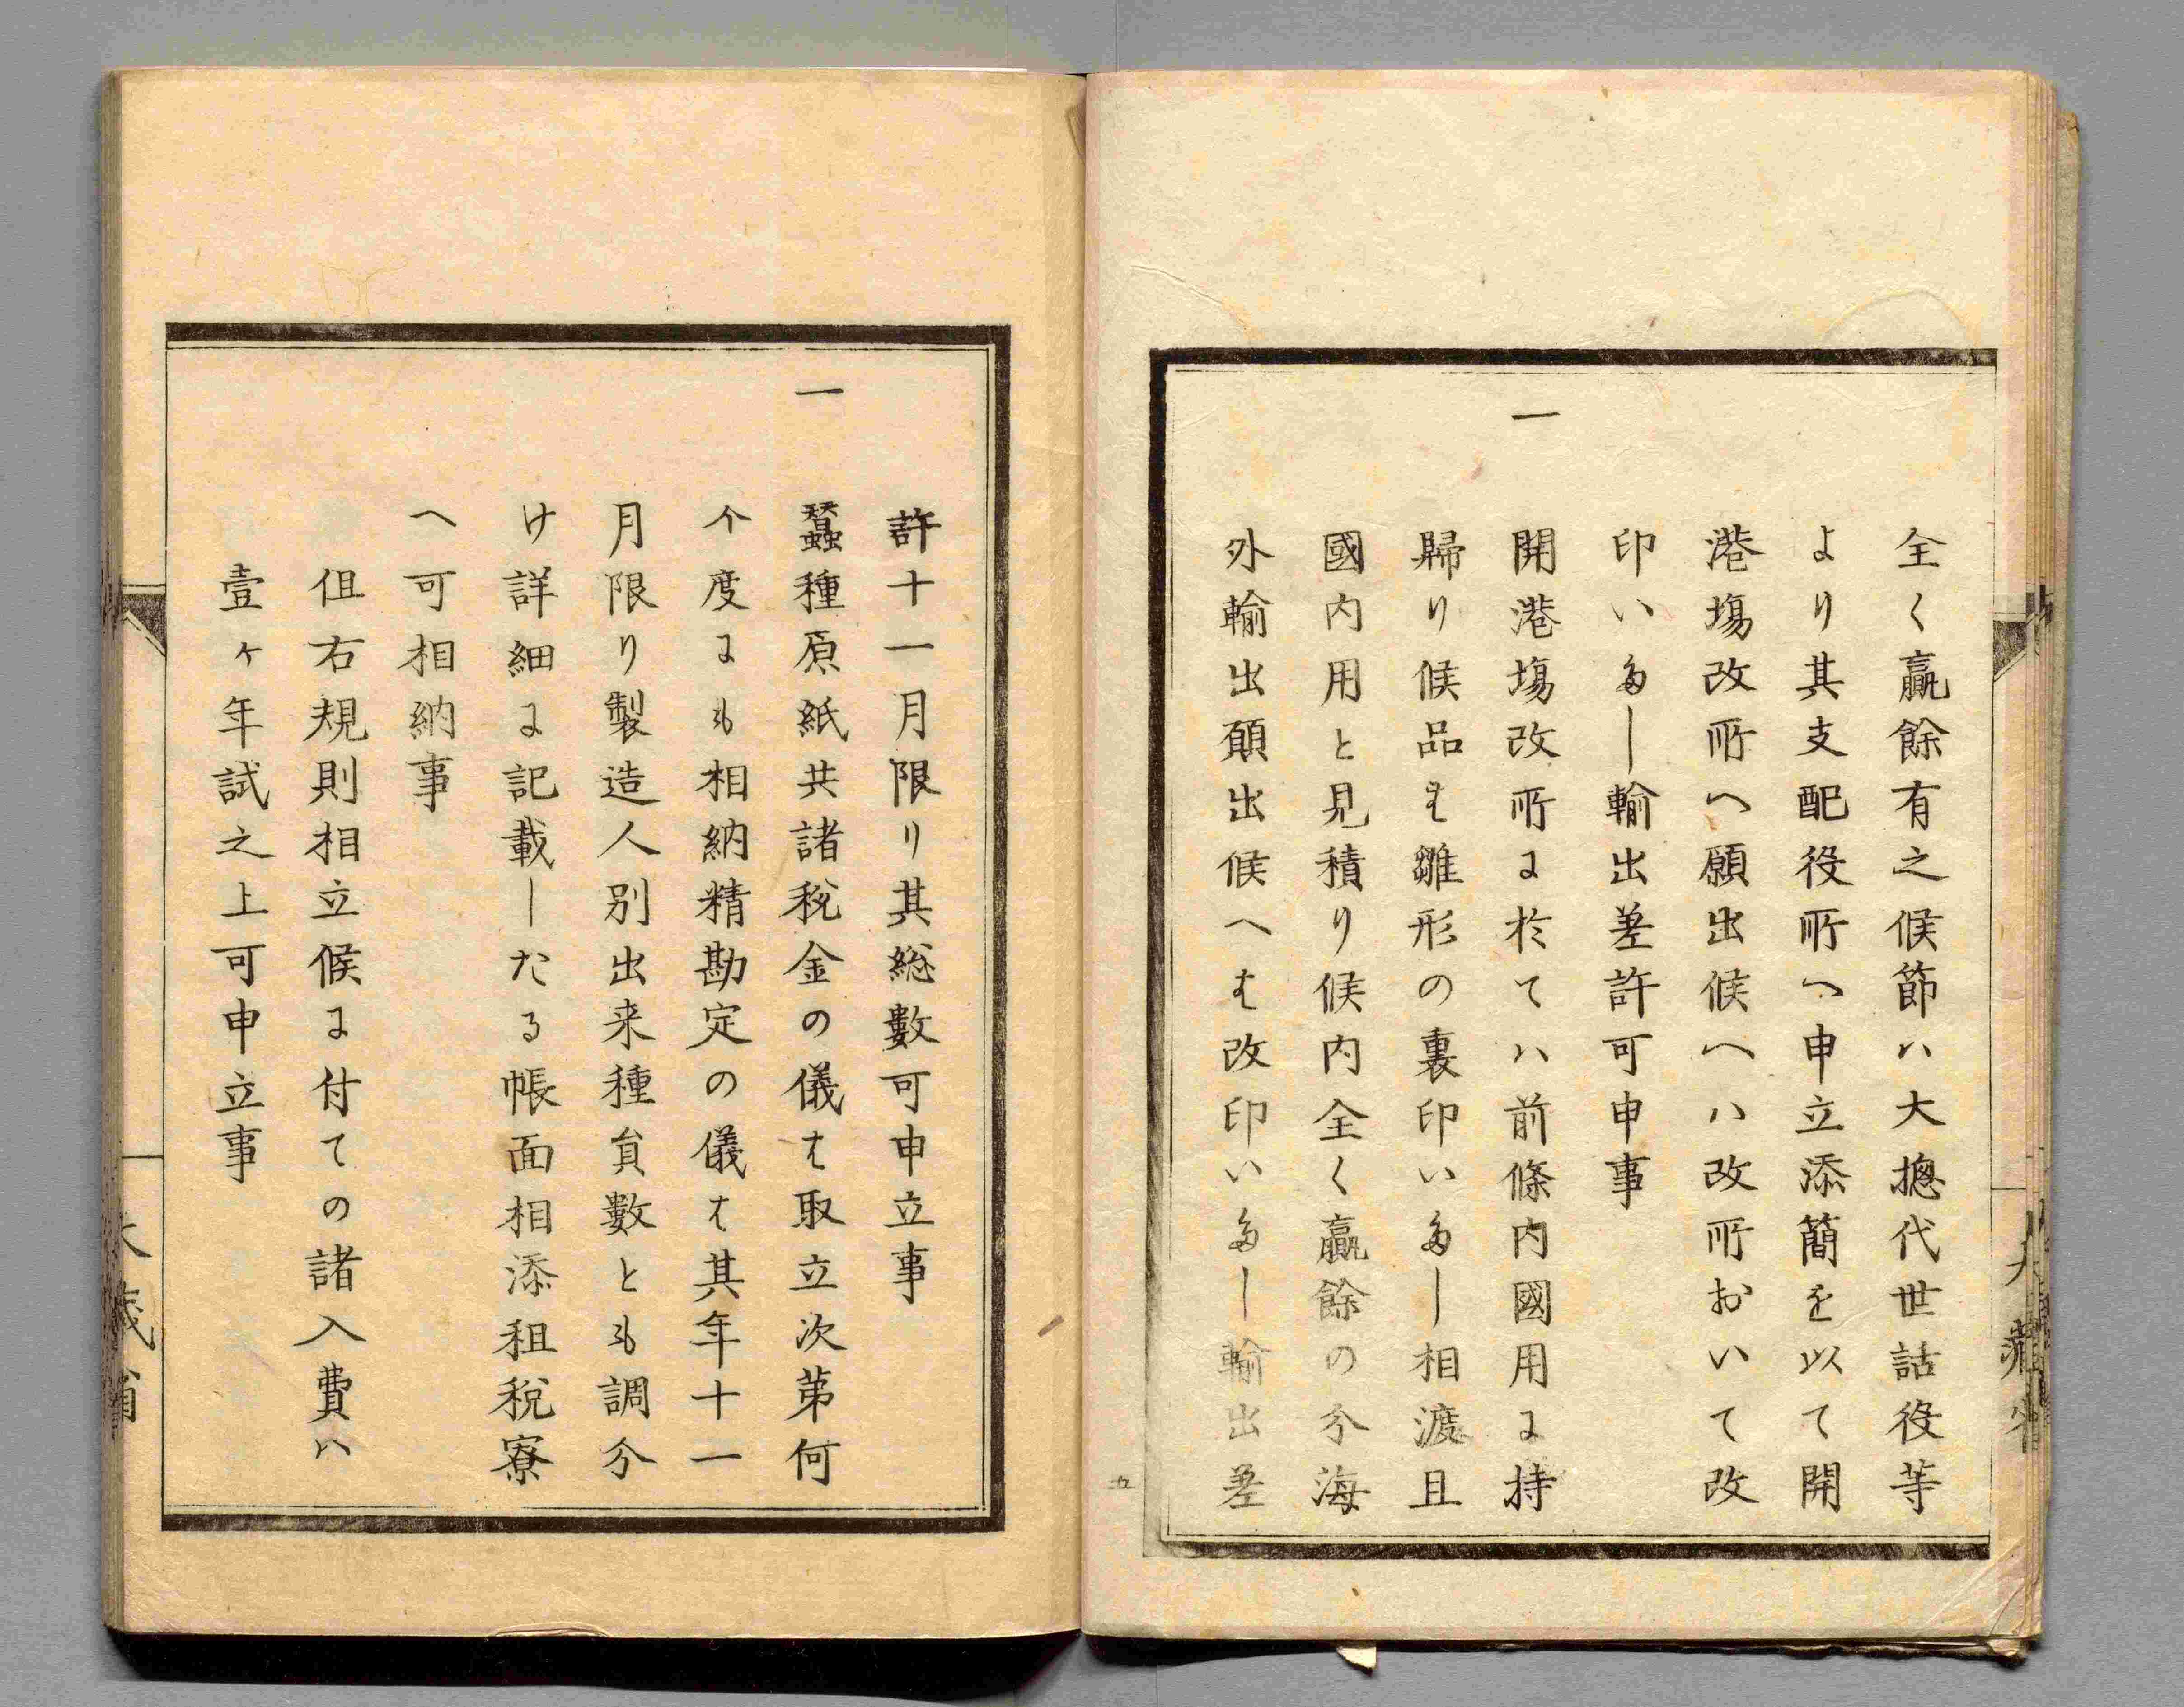 全く贏餘有之候節ハ大摠代世話役等
より其支配役所へ申立添簡を以て開
港塲改所へ願出候ヘハ改所おいて改
印いたし輸出差許可申事
一 開港塲改所に於てハ前條内國用に持
歸り候品は雛形の裏印いたし相渡且
國内用と見積り候内全く贏餘の分海
外輸出願出候へは改印いたし輸出差
五
許十一月限り其総數可申立事
一 蠶種原紙共諸税金の儀は取立次第何
个度にも相納精勘定の儀は其年十一
月限り製造人別出来種員數とも調分
け詳細に記載したる帳面相添租税寮
へ可相納事
但右規則相立候に付ての諸入費ハ
壹ヶ年試之上可申立事
大藏省